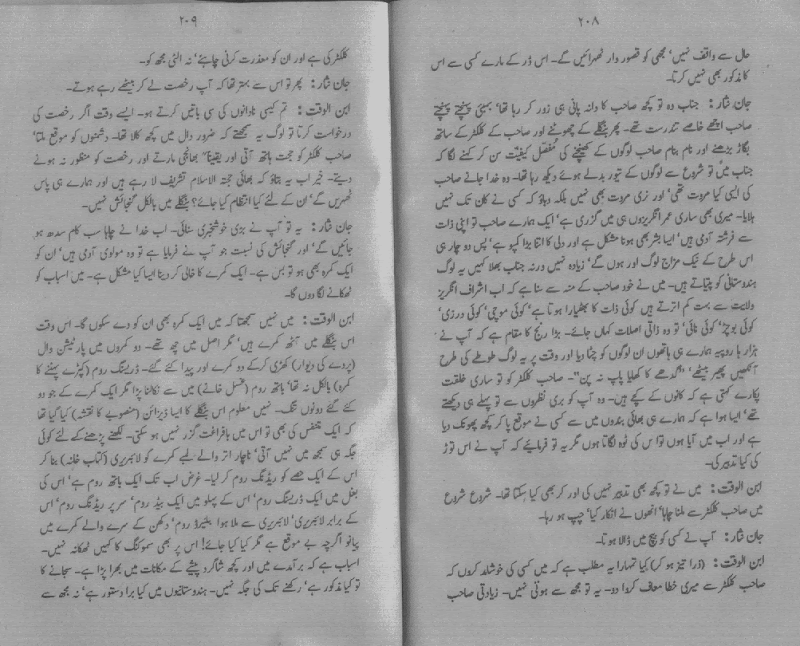 ۲۰۸
حال سے واقف نہیں‘ مجھی کو قصور وار ٹھرائیں گے۔ اس ڈر کے مارے کسی سے اس
کا مذکور بھی نہیں کرتا۔
جان نثار: جناب وہ تو کچھ صاحب کا دانہ پانی ہی زور کر رہا تھا‘ بمبئی پہنچتے پہنچتے
صاحب اچھے خاصے تندرست تھے۔ پھر بنگلے کے چھوٹنے اور صاحب کے کلکٹر کے ساتھ
بگاڑ بڑھنے اور نام بنام صاحب لوگوں کے کھنچنے کی مُفصّل کیفیّت سن کر کہنے لگا کہ
جناب میں تو شروع سے لوگوں کے تیور بدلے ہوئے دیکھ رہا تھا۔ وہ خدا جانے صاحب
کی ایسی کیا مروت تھی‘ اور نری مروت بھی نہیں بلکہ دباؤ کہ کسی نے کان تک نہیں
ہلایا۔ میری بھی ساری عمر انگریزوں ہی میں گزری ہے‘ ایک ہمارے صاحب تو اپنی ذات
سے فرشتہ آدمی ہیں‘ ایسا بشر بھی ہونا مشکل ہے اور دلی کا اتنا بڑا کمپو ہے‘ پس دو چار ہی
اس طرح کے نیک مزاج لوگ اور ہوں گے‘ زیادہ نہیں ورنہ جناب بھلا کہیں یہ لوگ
ہندوستانی کو پتیاتے ہیں۔ میں نے خود صاحب کے منہ سے سنا ہے کہ اب اشراف انگریز
ولایت سے بہت کم اترتے ہیں کوئی ذات کا بھٹیارا ہوتا ہے‘ کوئی موچی‘ کوئی ورزی‘
کوئی بوچڑ‘ کوئی نائی‘ تو وہ ذاتی اصلات کہاں جائے۔ بڑا رنج کا مقام ہے کہ آپ نے
ہزار ہا روپیہ ہمارے ہی ہاتھوں ان لوگوں کو چٹا دیا اور وقت پر یہ لوگ طوطے کی طرح
آنکھیں پھیر بیٹھے‘ ”گدھے کا کھایا پاپ نہ پن“۔ صاحب کلکٹر کو تو ساری خلقت
پکارے کہتی ہے کہ کانوں کے کچے ہیں۔ وہ آپ کو بری نظروں سے تو پہلے ہی دیکھتے
تھے‘ ایسا ہوا ہے کہ ہمارے ہی بھائی بندوں میں سے کسی نے موقع پا کر کچھ پھونک دیا
ہے اور اب میں آیا ہوں تو اس کی ٹوہ لگاتا ہوں مگر یہ تو فرمایئے کہ آپ نے اس توڑ
کی کیا تدبیر کی۔
ابن الوقت: میں نے تو کچھ بھی تدبیر نہیں کی اور کر بھی کیا سکتا تھا۔ شروع شروع
میں صاحب کلکٹر سے ملنا چاہا‘ انھوں نے انکار کیا‘ چپ ہو رہا۔
جان نثار: آپ نے کسی کو بیچ میں ڈالا ہوتا۔
ابن الوقت: (ذرا تیز ہو کر) کیا تمہارا یہ مطلب ہے کہ میں کسی کی خوشامد کروں کہ
صاحب کلکٹر سے میری خطا معاف کروا دو۔ یہ تو مجھ سے ہوتی نہیں۔ زیادتی صاحب
۲۰۹
کلکٹر کی ہے اور ان کو معذرت کرنی چاہئے‘ نہ الٹی مجھ کو۔
جان نثار: پھر تو اس سے بہتر تھا کہ آپ رخصت لے کر بیٹھے رہے ہوتے۔
ابن الوقت: تم کیسی نادانوں کی سی باتیں کرتے ہو۔ ایسے وقت اگر رخصت کی
درخواست کرتا تو لوگ یہ سمجھتے کہ ضرور دال میں کچھ کالا تھا۔ دشمنوں کو موقع ملتا‘
صاحب کلکٹر کو حجت ہاتھ آتی اور یقیناً بھانجی مارتے اور رخصت کو منظور نہ ہونے
دیتے۔ خیر اب یہ بتاؤ کہ بھائی حجتہ الاسلام تشریف لا رہے ہیں اور ہمارے ہی پاس
ٹھسریں گے‘ ان کے لئے کیا انتظام کیا جائے؟ بنگلے میں بالکل گنجائش نہیں۔
جان نثار: یہ تو آپ نے بڑی خوشخبری سنائی۔ اب خدا نے چاہا سب کام سدھ ہو
جائیں گے‘ اور گنجائش کی نسبت جو آپ نے فرمایا ہے تو وہ مولوی آدمی ہیں‘ ان کو
ایک کمرہ بھی ہو تو بس ہے۔ ایک کمرے کا خالی کر دینا ایسا کیا مشکل ہے۔ میں اسباب کو
ٹھکانے لگا دوں گا۔
ابن الوقت: میں نہیں سمجھتا کہ میں ایک کمرہ بھی ان کو دے سکوں گا۔ اس وقت
اس بنگلے میں آٹھ کمرے ہیں‘ مگر اصل میں چھ تھے۔ دو کمروں میں پارٹیشن وال
(پردے کی دیوار) کھڑی کر کے دو کمرے اور پیدا کئے گئے۔ ڈریسنگ روم (کپڑے پہننے کا
کمرہ) بالکل نہ تھا‘ باتھ روم (غسل خانے) میں سے نکالنا پڑا مگر ایک کمرے کے جو دو
کئے گئے دونوں تنگ۔ نہیں معلوم اس بنگلے کا ایسا ڈیزائن (منصوبے کا نقشہ) کیا گیا تھا
کہ ایک متنفس کی بھی تو اس میں بافراغت گزر نہیں ہو سکتی۔ لکھنے پڑھنے کے لئے کوئی
جگہ ہی سمجھ میں نہیں آتی‘ ناچار اتر والے لمبے کمرے کو لائبریری (کتاب خانہ) بنا کر
اس کے ایک حصے کو ریڈنگ روم کر لیا۔ غرض اب تک ایک باتھ روم ہے‘ اس کی
بغل میں ایک ڈریسنگ روم‘ اس کے پہلو میں ایک بیڈ روم‘ سر پر ریڈنگ روم‘ اس
کے برابر لائبریری‘ لائبریری سے ملا ہوا بلیئرڈ روم‘ دکھن کے سرے والے کمرے میں
پیانو اگرچہ بے موقع ہے مگر کیا کیا جائے! اس پر بھی سموکنگ کا کہیں ٹھکانہ نہیں۔
اسباب ہے کہ برآمدے میں اور کچھ شاگرد پیشے کے مکانات میں بھرا پڑا ہے۔ سجانے کا
تو کیا مذکور ہے‘ رکھنے تک کی جگہ نہیں۔ ہندوستانیوں میں کیا برا دستور ہے‘ نہ مجھ سے